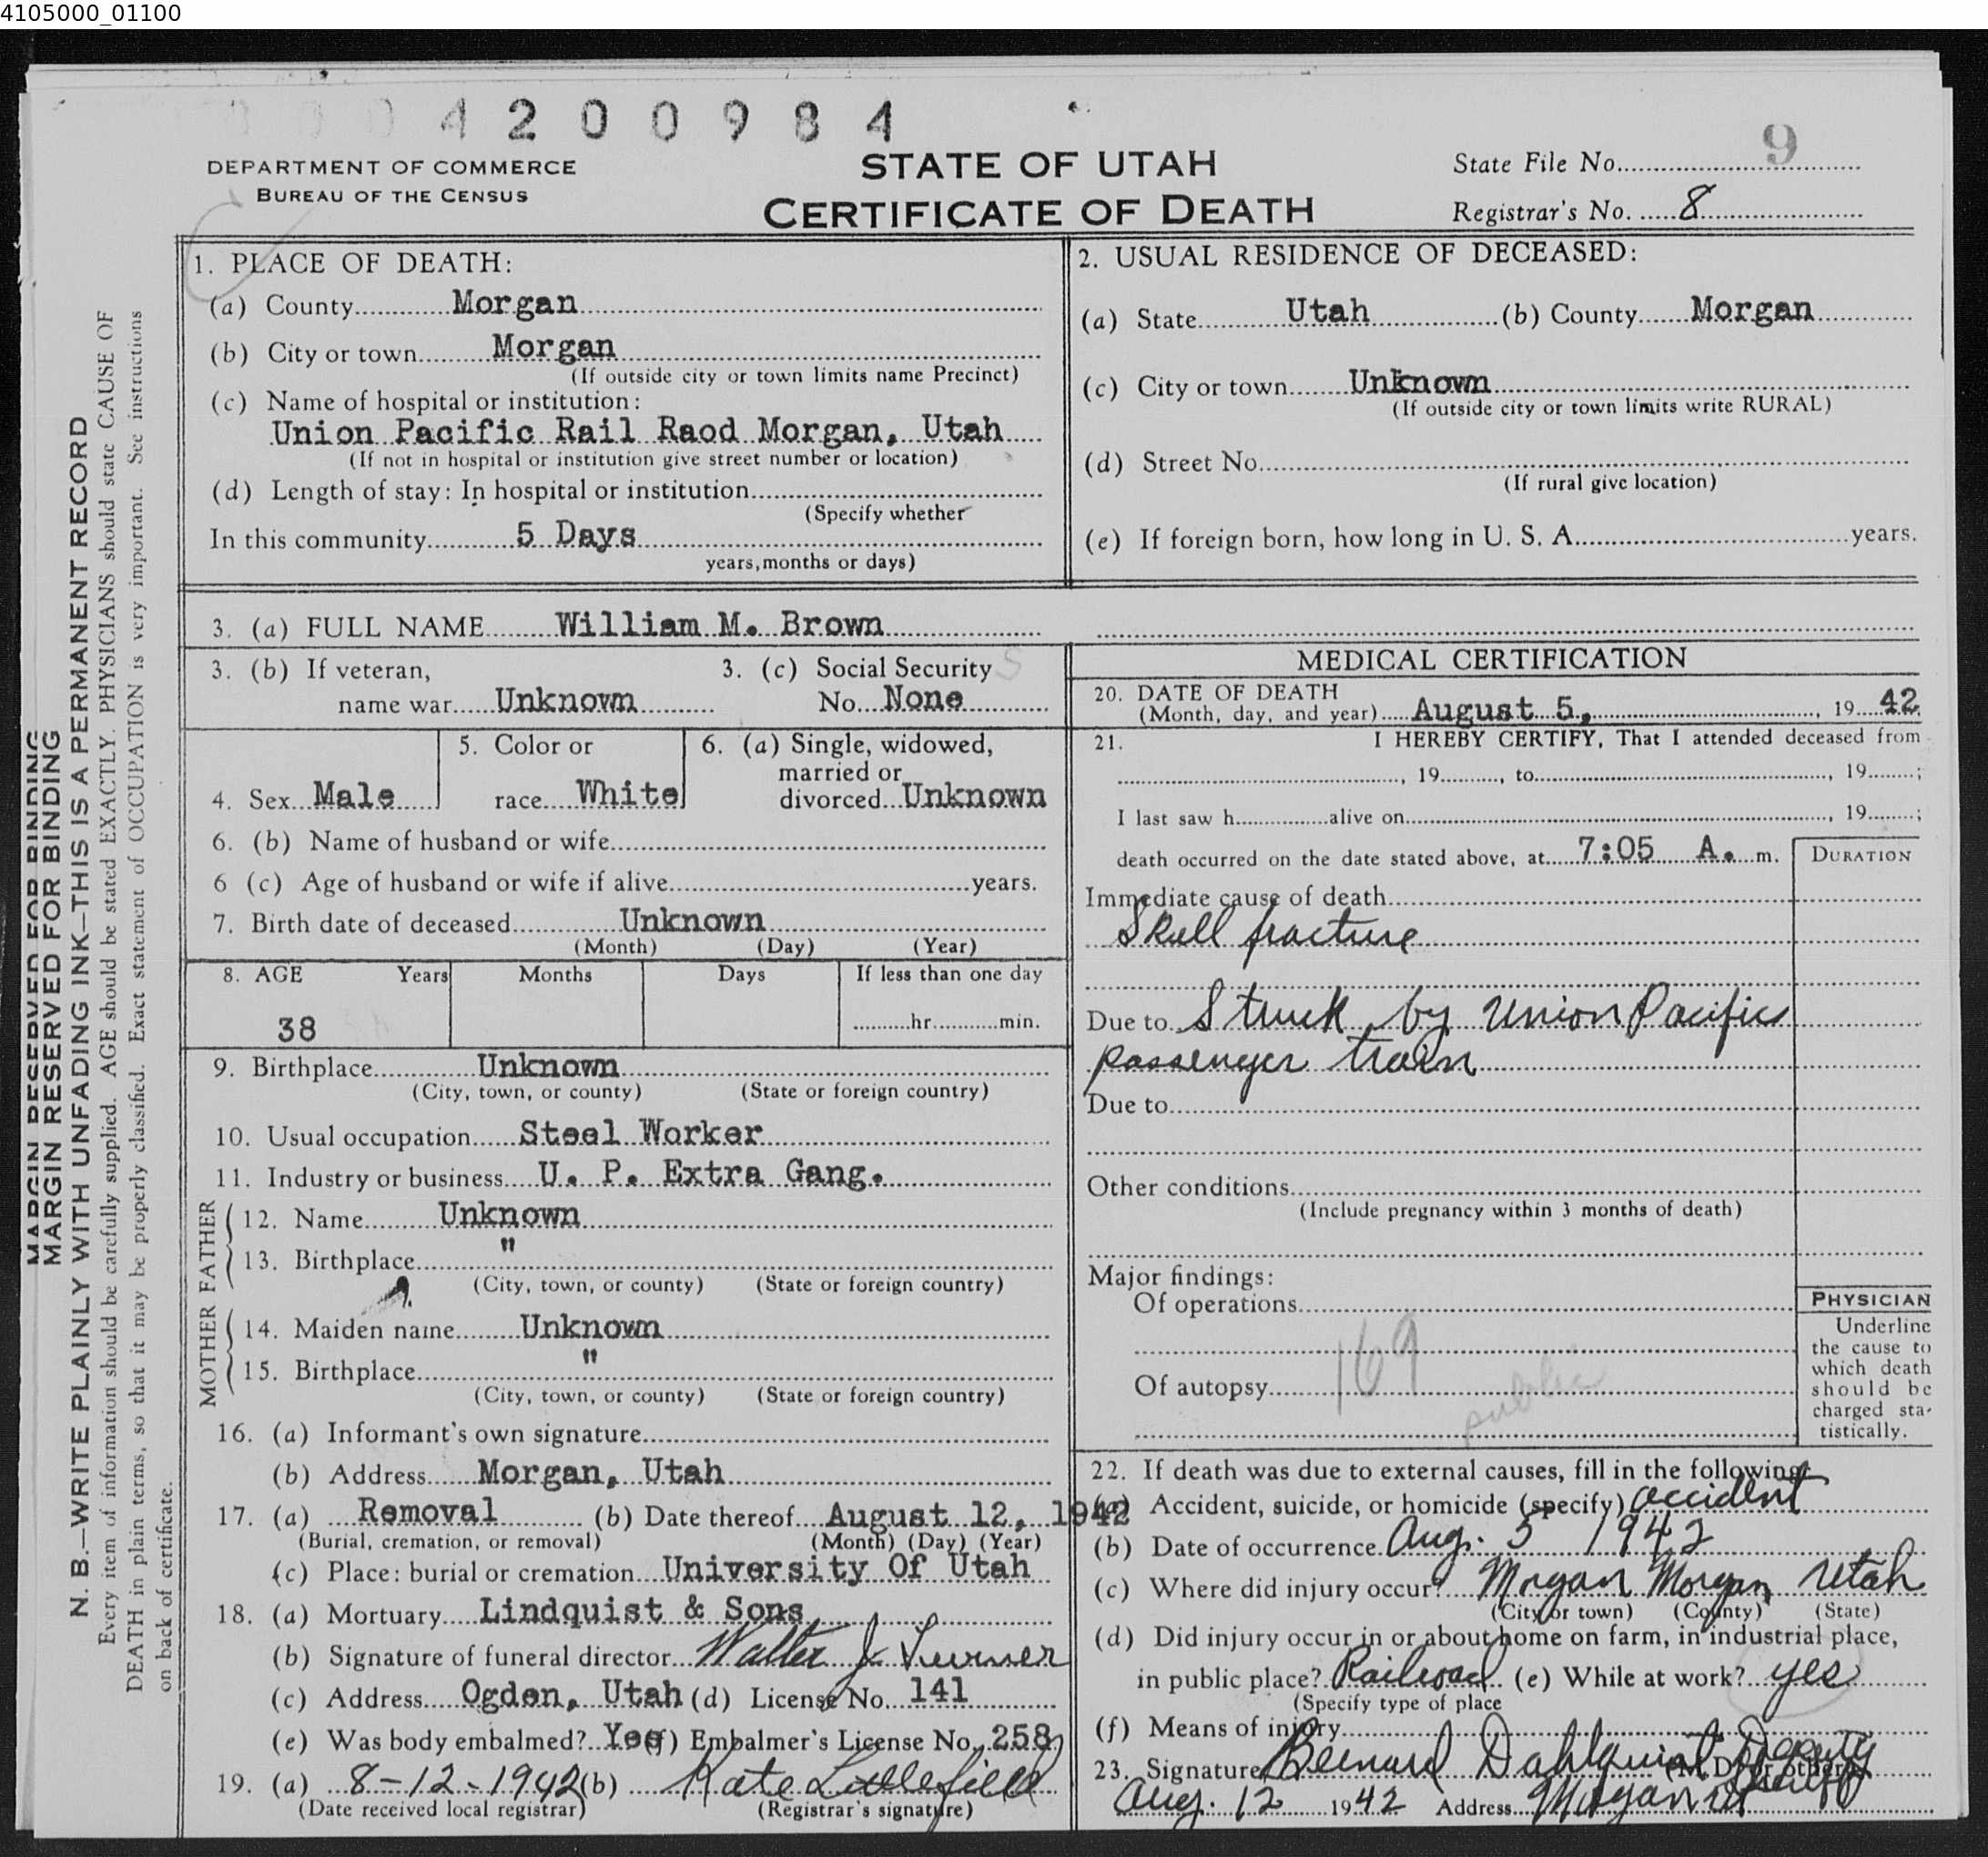 4105000_01100
0004200984
DEPARTMENT OF COMMERCE
BUREAU OF THE CENSUS
STATE OF UTAH
CERTIFICATE OF DEATH
State File No. 9
Registrar's No. 8
MARGIN RESERVED FOR BINDING
MARGIN RESERVED FOR BINDING
N. B.—WRITE PLAINLY WITH UNFADING INK—THIS IS A PERMANENT RECORD
Every item of information should be carefully supplied. AGE should be stated EXACTLY. PHYSICIANS should state CAUSE OF
DEATH in plain terms, so that it may be properly classified. Exact statement of OCCUPATION is very important. See instructions
on back of certificate.
1. PLACE OF DEATH:
(a) County Morgan
(b) City or town Morgan
(If outside city or town limits name Precinct)
(c) Name of hospital or institution:
Union Pacific Rail Raod Morgan, Utah
(If not in hospital or institution give street number or location)
(d) Length of stay: In hospital or institution
(Specify whether
In this community 5 Days
years, months or days)
2. USUAL RESIDENCE OF DECEASED:
(a) State Utah (b) County Morgan
(c) City or town Unknown
(If outside city or town limits write RURAL)
(d) Street No.
(If rural give location)
(e) If foreign born, how long in U. S. A. years.
3. (a) FULL NAME William M. Brown
3. (b) If veteran,
name war Unknown
3. (c) Social Security
No. None
4. Sex Male
5. Color or
race White
6. (a) Single, widowed,
married or
divorced Unknown
6. (b) Name of husband or wife
6 (c) Age of husband or wife if alive years.
7. Birth date of deceased Unknown
(Month) (Day) (Year)
8. AGE Years Months Days If less than one day
38 hr. min.
9. Birthplace Unknown
(City, town, or county) (State or foreign country)
10. Usual occupation Steel Worker
11. Industry or business U. P. Extra Gang.
FATHER
12. Name Unknown
13. Birthplace "
(City, town, or county) (State or foreign country)
MOTHER
14. Maiden name Unknown
15. Birthplace "
(City, town, or county) (State or foreign country)
16. (a) Informant's own signature
(b) Address Morgan, Utah
17. (a) Removal (b) Date thereof August 12, 1942
(Burial, cremation, or removal) (Month) (Day) (Year)
(c) Place: burial or cremation University Of Utah
18. (a) Mortuary Lindquist & Sons
(b) Signature of funeral director Walter J
(c) Address Ogden, Utah (d) License No. 141
(e) Was body embalmed? Yes (f) Embalmer's License No. 258
19. (a) 8-12-1942 (b) Kate Littlefield
(Date received local registrar) (Registrar's signature)
MEDICAL CERTIFICATION
20. DATE OF DEATH
(Month, day, and year) August 5, 1942
21. I HEREBY CERTIFY, That I attended deceased from
, 19 , to , 19 ;
I last saw h alive on , 19 ;
death occurred on the date stated above, at 7:05 A. m.
DURATION
Immediate cause of death
Skull fracture
Due to Struck by Union Pacific
passenger train
Due to
Other conditions
(Include pregnancy within 3 months of death)
Major findings:
Of operations
169
Of autopsy
public
PHYSICIAN
Underline
the cause to
which death
should be
charged sta-
tistically.
22. If death was due to external causes, fill in the following:
(a) Accident, suicide, or homicide (specify) accident
(b) Date of occurrence Aug. 5 1942
(c) Where did injury occur? Morgan Morgan Utah
(City or town) (County) (State)
(d) Did injury occur in or about home on farm, in industrial place,
in public place? Railroad (e) While at work? yes
(Specify type of place
(f) Means of injury
23. Signature Bernard Dahlquist Deputy Sheriff
(M. D. or other)
Aug. 12 1942 Address Morgan Ut